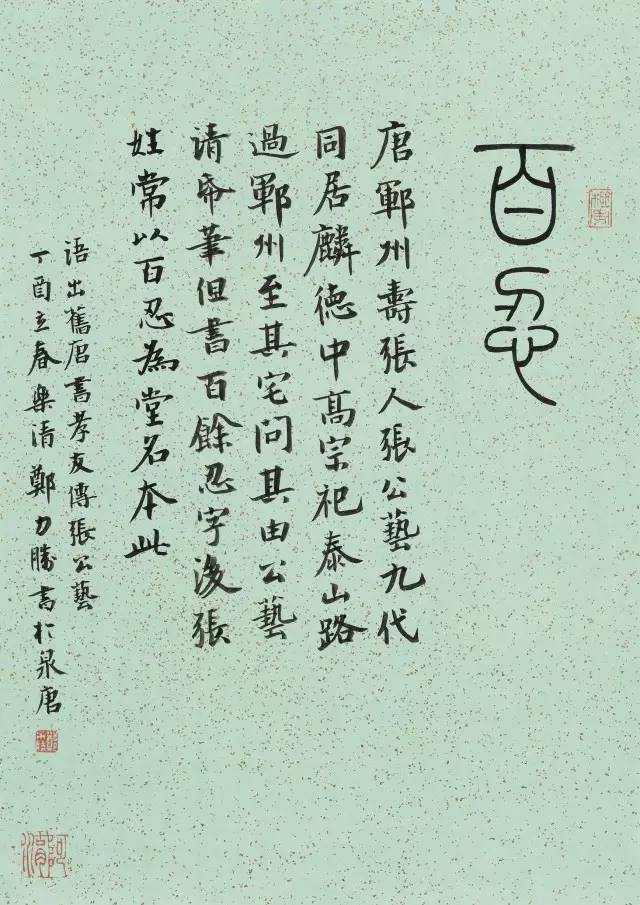 百忍
唐鄆州壽張人張公藝九代
同居麟德中高宗祀泰山路
過鄆州至其宅问其由公藝
请纸筆但書百餘忍字後張
姓常以百忍為堂名本此
语出舊唐書孝友傳張公藝
丁酉立春樂清鄭力勝書於泉唐